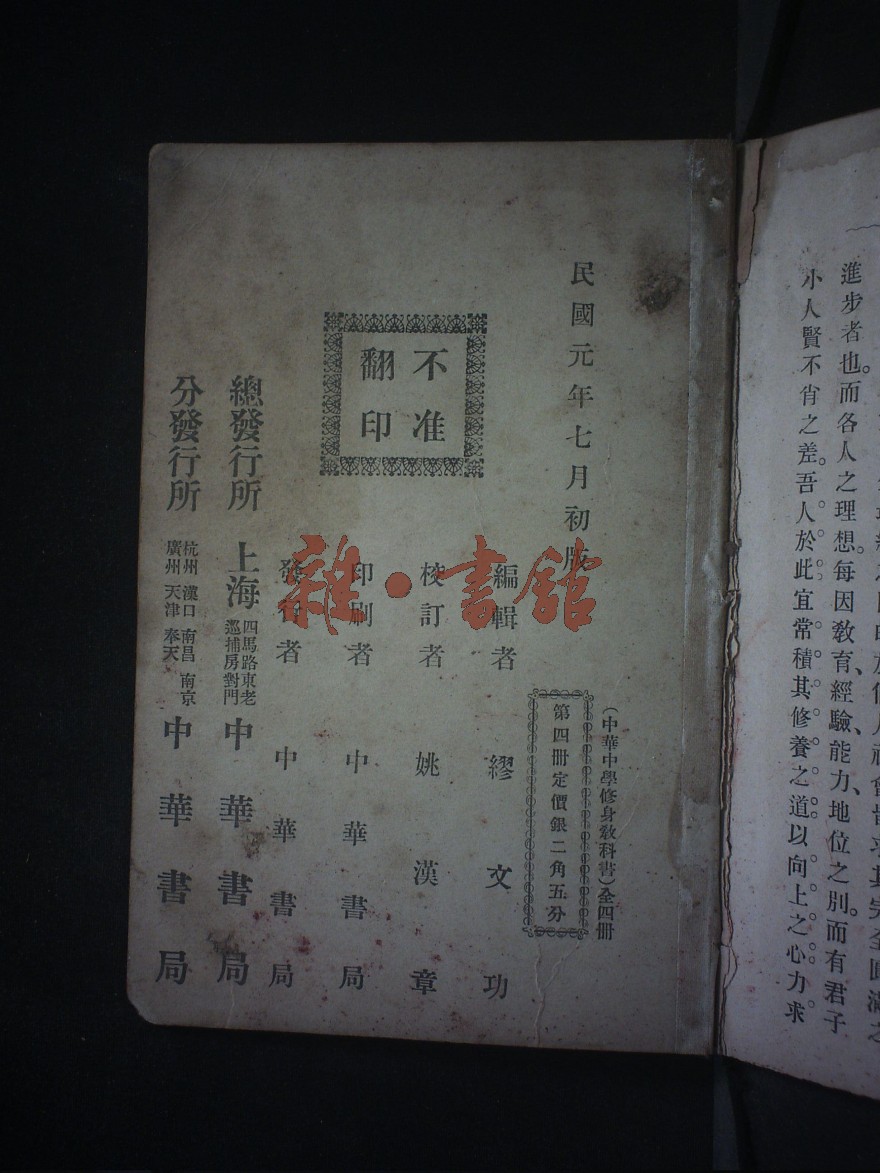 進步者也。而各人之理想。每因教育、經驗、能力、地位之別。而有君子
小人賢不肖之差。吾人於此宜常積其修養之道以向上之心力求
民國元年七月初版
(中華中學修身教科書)全四冊
第四冊定價銀二角五分
編輯者 繆文功
校訂者 姚漢章
印刷者 中華書局
發行者 中華書局
不准
翻印
總發行所 上海 四馬路東老巡捕房對門 中華書局
分發行所 杭州 漢口 南昌 南京 廣州 天津 奉天 中華書局
雜·書館